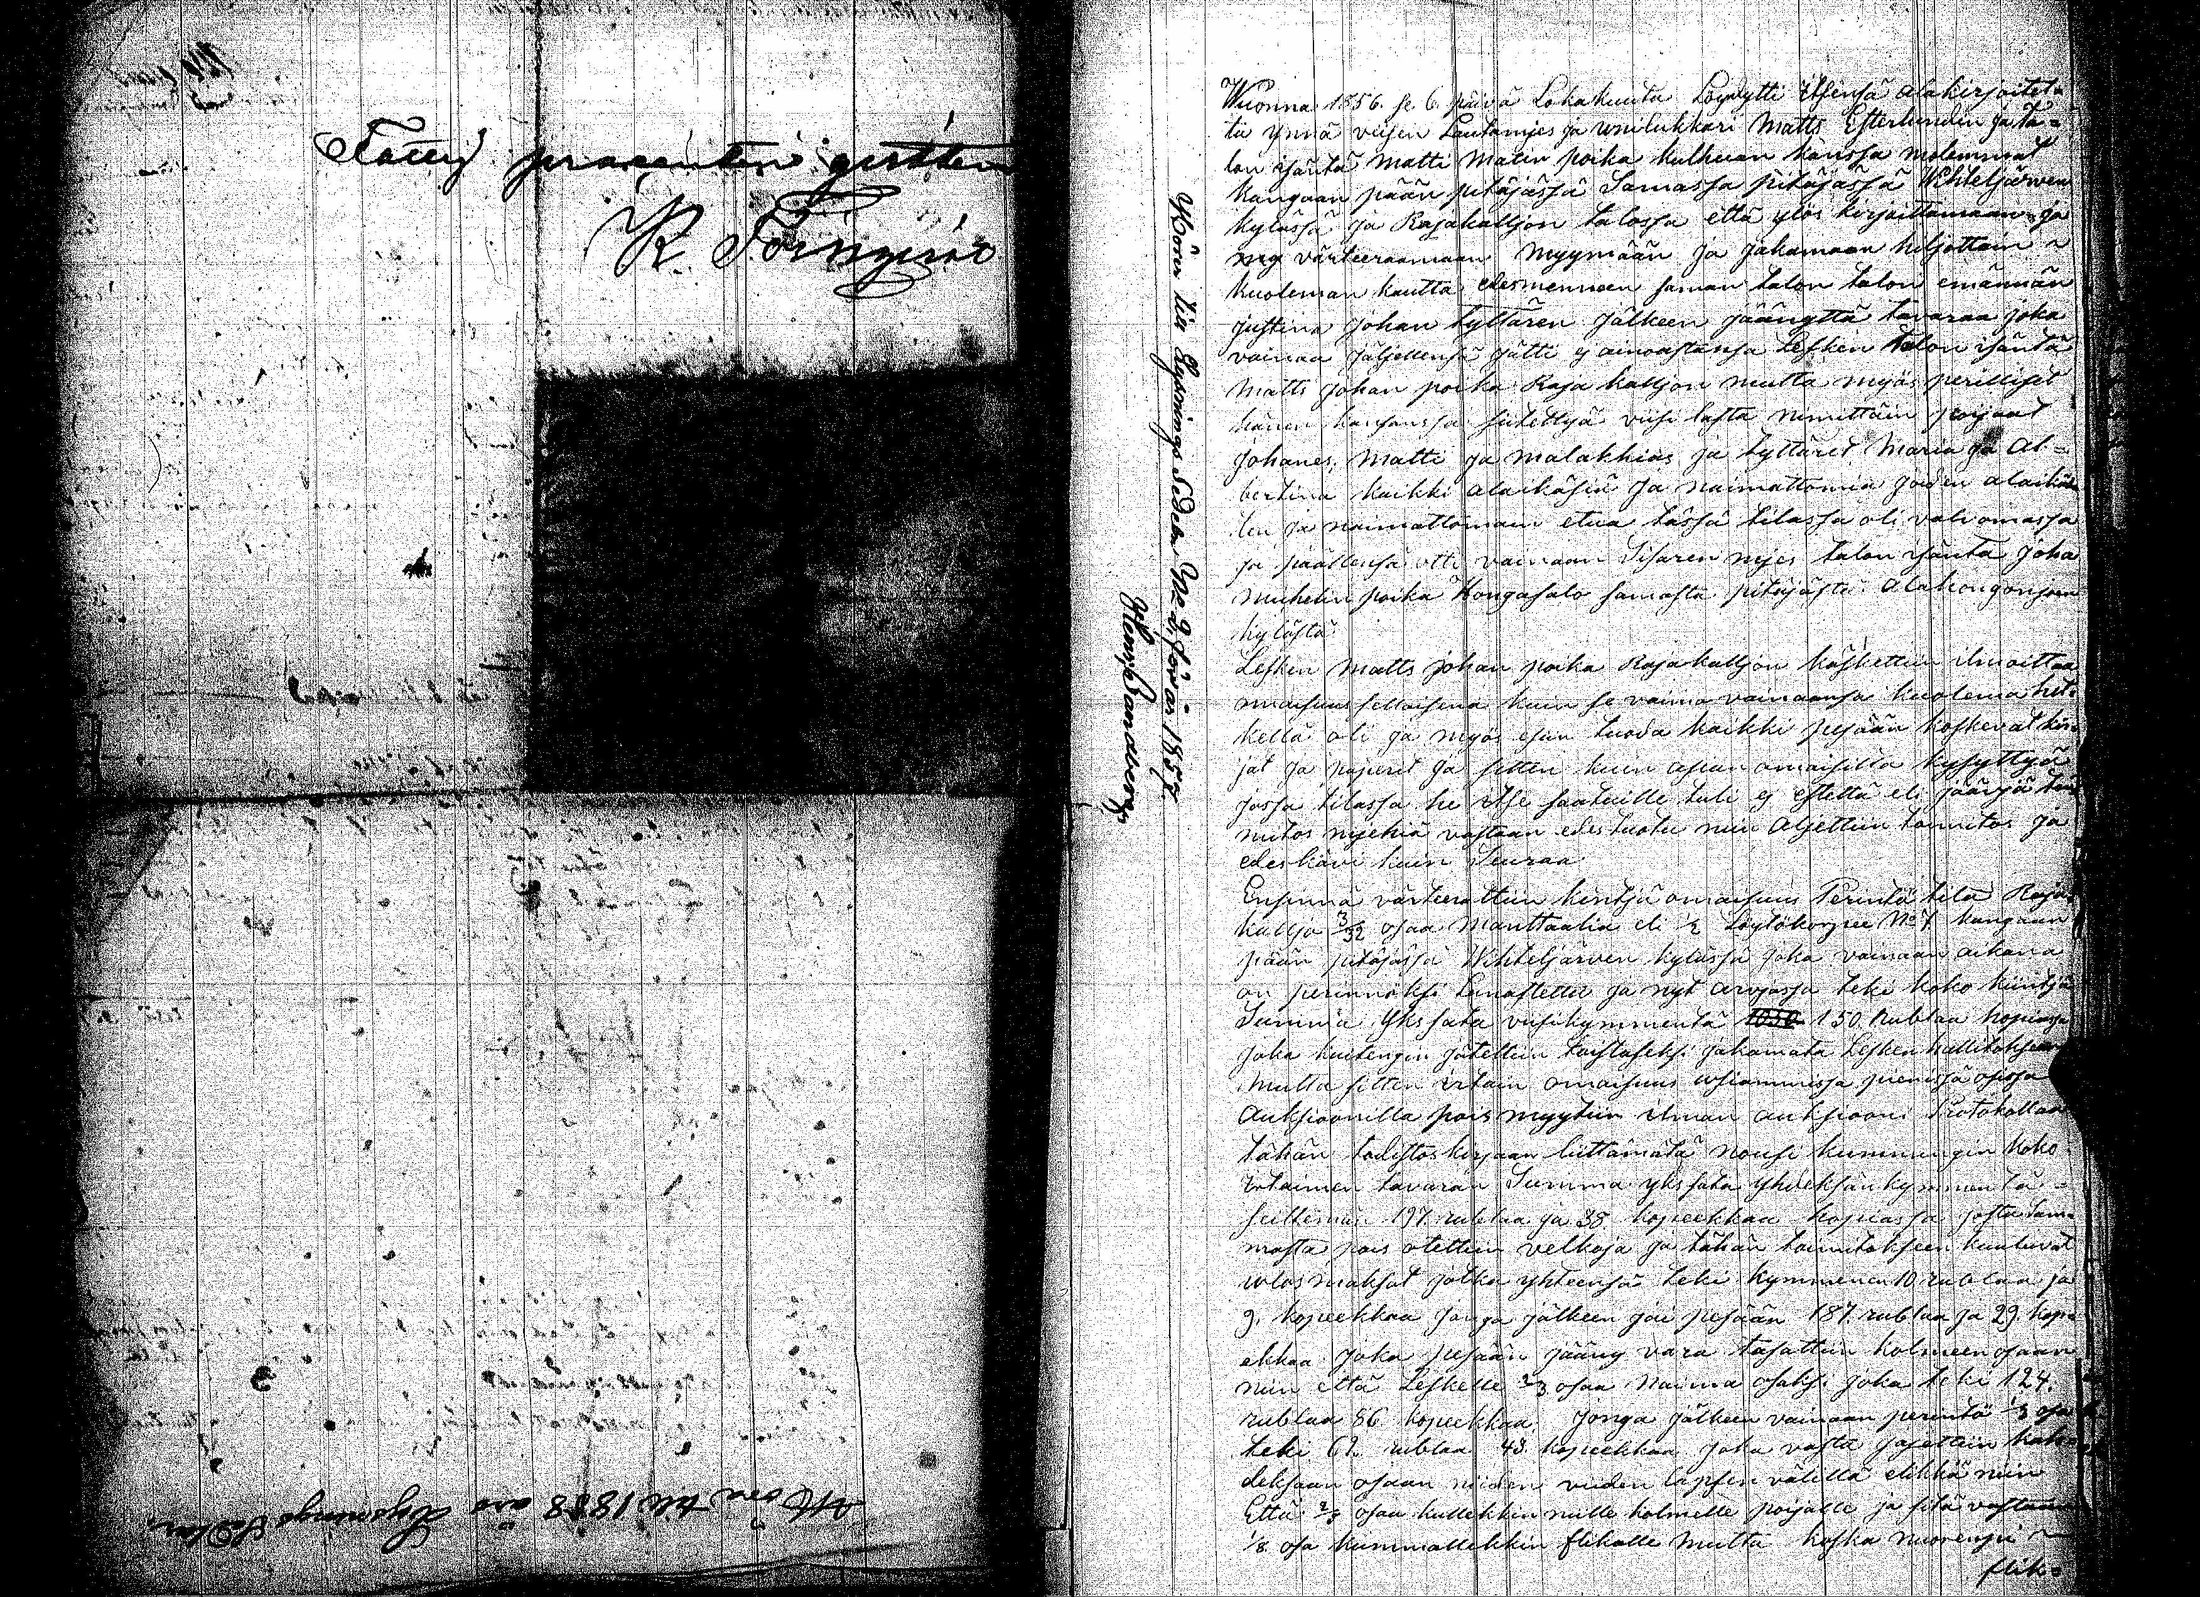 Fattig procenten gusten
K. Törngren
Hörer till 1858 års Lysnings Sedlar.
Hörer till Lysnings Sedeln No 2. för år 1857.
Henr. Sandberg
Wuonna 1856. se 6. päivä Lokakuuta Löydytti itsensä alakirjoitet=
tu ynnä veisen Lautamjes ja unilukkari Matts Esterlundin ja ta=
lon isäntä Matti Matin poika kulhuan kanssa molemmat
kangaan pään pitäjässä Samassa pitäjässä Wihteljärven
kylässä ja Rajakalljon talossa että ylös kirjoittamaan ja
värteeraamaan myymään ja jakamaan hiljottain
kuoleman kautta edesmenneen saman talon talon emännän
justina johan tyttären jälkeen jäänyttä tavaraa joka
vainaa jäljellensä jätti ej ainoastansa Lesken talon isäntä
Matts johan poika Rajakalljon mutta myös perilliset
hänen kansansa siitettyä viisi lasta nimittäin poijaat
johanes. Matti ja malakkias ja tyttäret Maria ja Al=
bertina kaikki alaikäsiä ja naimattomia joiden alaikäs
ten ja naimattomain etua tässä tilassa oli valvomassa
ja päällensä otti vainaan Sisaren mjes talon isäntä joha
mickelin poika Kongasalo samasta pitäjästä alahongonjoen
kylästä
Lesken Matts johan poika Rajakalljon käskettiin ilmoittaa
omaisuus sellaisena kuin se vaimo vainaansa kuolema het=
kellä oli ja myös esiin tuoda kaikki pesään koskevat kir=
jat ja paperit ja sitten kuin asian omaisilta kysyttyä
jossa tilassa he itse saatuille tuli ej estettä eli jääviä toi
mitos mjehiä vastaan edestuotu niin aljettiin toimitos ja
edeskävi kuin Seuraa
Ensinnä värteerattiin kiintjä omaisuus Perintö tila Raja
kalljo 3/32 osaa Manttaalia eli 1/2 Löytökorpee No 7 kangaan
pään pitäjässä Wihteljärven kylässä joka vainaan aikana
on perinnöksi Lunastettu ja nyt arvossa teki koko kiintjä
Summa Yksi sata viisikymmentä 1050 150 Rublaa hopiassa
joka kuitengin jätettiin toistaseksi jakamata Lesken hallitukseen
Mutta sitten irtain omaisuus usiammissa pienissä osissa
Auksjoonilla pois myytiin ilman auksjooni Protokollaa
tähän todistoskirjaan liittämätä nousi kummingin koko
irtaimen tavaran Summa yksi sata yhdeksän kymmentä =
seittemän 197 rublaa ja 38 kopeekkaa hopiassa josta sum=
masta pois otettiin velkoja ja tähän toimitokseen kuuluvat
ulosmaksot jotka yhteensä teki kymmenen 10 rublaa ja
9. kopeekkaa jonga jälkeen jäi pesään 187. rublaa ja 29. kope
ekkaa joka pesään jääny vara tasattiin kolmeen osaan
niin että Leskelle 2/3 osaa Naima osaksi joka teki 124.
rublaa 86 kopeekkaa. Jonga jälkeen vainaan perintö 1/3 osa
teki 62. rublaa 43 kopeekkaa joka vasta jaettiin kah=
deksaan osaan niiden viiden lapsen välillä elikkä niin
Että 2/8 osaa kullekkin niille kolmelle poijalle ja sitä vastaan
1/8. osa kummallekkin flikalle mutta koska nuorempi
flik=